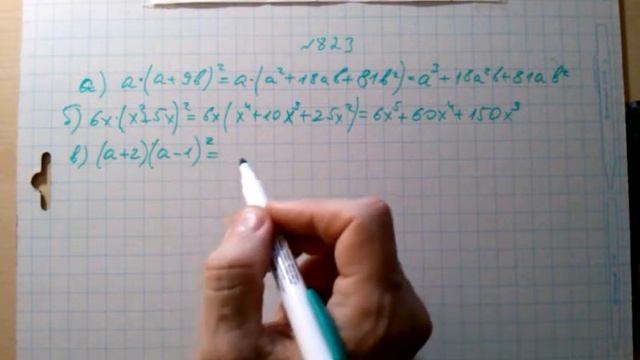 №823
а) a·(a+9b)²=a·(a²+18ab+81b²)=a³+18a²b+81ab²
б) 6x·(x²+5x)²=6x(x⁴+10x³+25x²)=6x⁵+60x⁴+150x³
в) (a+2)(a-1)²=